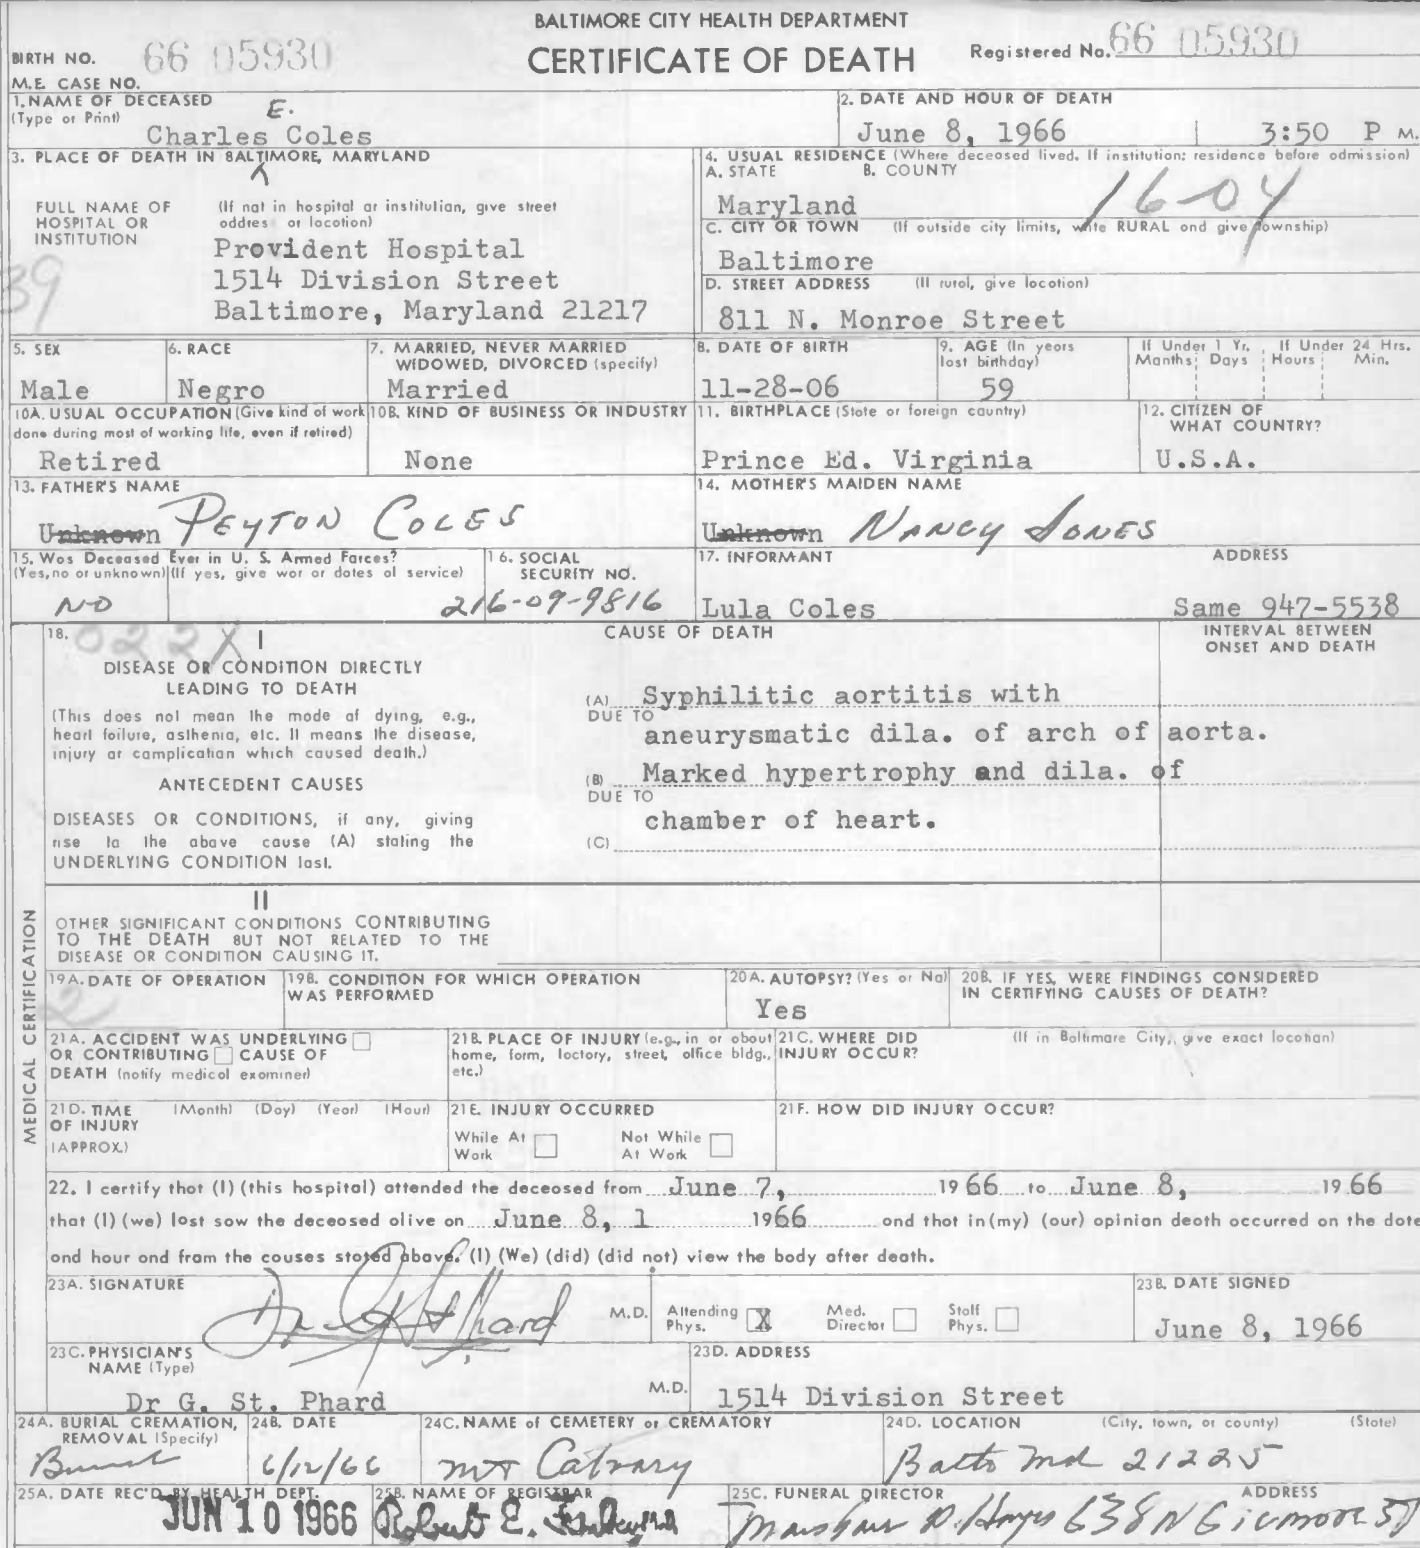 BALTIMORE CITY HEALTH DEPARTMENT
BIRTH NO. 66 05930 CERTIFICATE OF DEATH Registered No. 66 05930
M.E. CASE NO.
1. NAME OF DECEASED
(Type or Print)
E.
Charles Coles
2. DATE AND HOUR OF DEATH
June 8, 1966 3:50 P M.
3. PLACE OF DEATH IN BALTIMORE, MARYLAND
FULL NAME OF HOSPITAL OR INSTITUTION
(If not in hospital or institution, give street
address or location)
Provident Hospital
1514 Division Street
Baltimore, Maryland 21217
39
4. USUAL RESIDENCE (Where deceased lived. If institution: residence before admission)
A. STATE B. COUNTY
Maryland 16-04
C. CITY OR TOWN (If outside city limits, write RURAL and give township)
Baltimore
D. STREET ADDRESS (If rural, give location)
811 N. Monroe Street
5. SEX
Male
6. RACE
Negro
7. MARRIED, NEVER MARRIED
WIDOWED, DIVORCED (specify)
Married
8. DATE OF BIRTH
11-28-06
9. AGE (In years
last birthday)
59
If Under 1 Yr. If Under 24 Hrs.
Months Days Hours Min.
10A. USUAL OCCUPATION (Give kind of work
done during most of working life, even if retired)
Retired
10B. KIND OF BUSINESS OR INDUSTRY
None
11. BIRTHPLACE (State or foreign country)
Prince Ed. Virginia
12. CITIZEN OF
WHAT COUNTRY?
U.S.A.
13. FATHER'S NAME
Unknown PEYTON COLES
14. MOTHER'S MAIDEN NAME
Unknown NANCY JONES
15. Was Deceased Ever in U. S. Armed Forces?
(Yes, no or unknown) (If yes, give war or dates of service)
NO
16. SOCIAL
SECURITY NO.
216-09-9816
17. INFORMANT ADDRESS
Lula Coles Same 947-5538
MEDICAL CERTIFICATION
18. 022X I
CAUSE OF DEATH
INTERVAL BETWEEN
ONSET AND DEATH
DISEASE OR CONDITION DIRECTLY
LEADING TO DEATH
(This does not mean the mode of dying, e.g.,
heart failure, asthenia, etc. It means the disease,
injury or complication which caused death.)
ANTECEDENT CAUSES
DISEASES OR CONDITIONS, if any, giving
rise to the above cause (A) stating the
UNDERLYING CONDITION last.
(A) Syphilitic aortitis with
DUE TO
aneurysmatic dila. of arch of aorta.
(B) Marked hypertrophy and dila. of
DUE TO
chamber of heart.
(C)
II
OTHER SIGNIFICANT CONDITIONS CONTRIBUTING
TO THE DEATH BUT NOT RELATED TO THE
DISEASE OR CONDITION CAUSING IT.
2
19A. DATE OF OPERATION
19B. CONDITION FOR WHICH OPERATION
WAS PERFORMED
20A. AUTOPSY? (Yes or No)
Yes
20B. IF YES, WERE FINDINGS CONSIDERED
IN CERTIFYING CAUSES OF DEATH?
21A. ACCIDENT WAS UNDERLYING
OR CONTRIBUTING CAUSE OF
DEATH (notify medical examiner)
21B. PLACE OF INJURY (e.g., in or about
home, farm, factory, street, office bldg.,
etc.)
21C. WHERE DID
INJURY OCCUR?
(If in Baltimore City, give exact location)
21D. TIME
OF INJURY
(APPROX.)
(Month) (Day) (Year) (Hour)
21E. INJURY OCCURRED
While At
Work
Not While
At Work
21F. HOW DID INJURY OCCUR?
22. I certify that (I) (this hospital) attended the deceased from June 7, 1966 to June 8, 1966
that (I) (we) last saw the deceased alive on June 8, 1 1966 and that in (my) (our) opinion death occurred on the date
and hour and from the causes stated above. (I) (We) (did) (did not) view the body after death.
23A. SIGNATURE
M.D.
Attending
Phys. X
Med.
Director
Staff
Phys.
23B. DATE SIGNED
June 8, 1966
23C. PHYSICIAN'S
NAME (Type)
Dr G. St. Phard M.D.
23D. ADDRESS
1514 Division Street
24A. BURIAL CREMATION,
REMOVAL (Specify)
Burial
24B. DATE
6/12/66
24C. NAME of CEMETERY or CREMATORY
MT Calvary
24D. LOCATION (City, town, or county) (State)
Balto Md 21225
25A. DATE REC'D BY HEALTH DEPT.
JUN 10 1966
25B. NAME OF REGISTRAR
Robert E.
25C. FUNERAL DIRECTOR ADDRESS
638 N Gilmore St